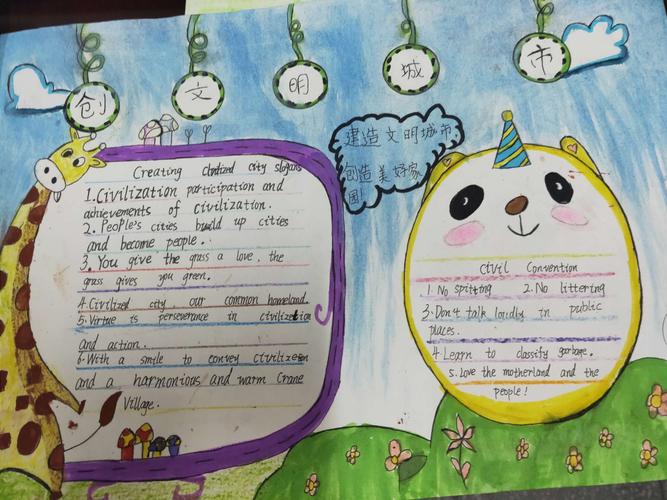 创文明城市
建造文明城市
创造美好家
园!
Creating civilized city slogans
1. Civilization participation and
achievements of civilization.
2. People's cities build up cities
and become people.
3. You give the grass a love, the
grass gives you green.
4. Civilized city, our common homeland.
5. Virtue is perseverance in civilization
and action.
6. With a smile to convey civilization
and a harmonious and warm Crane
Village.
Civil Convention
1. No spitting 2. No littering
3. Don't talk loudly in public
places.
4. Learn to classify garbage.
5. Love the motherland and the
people!